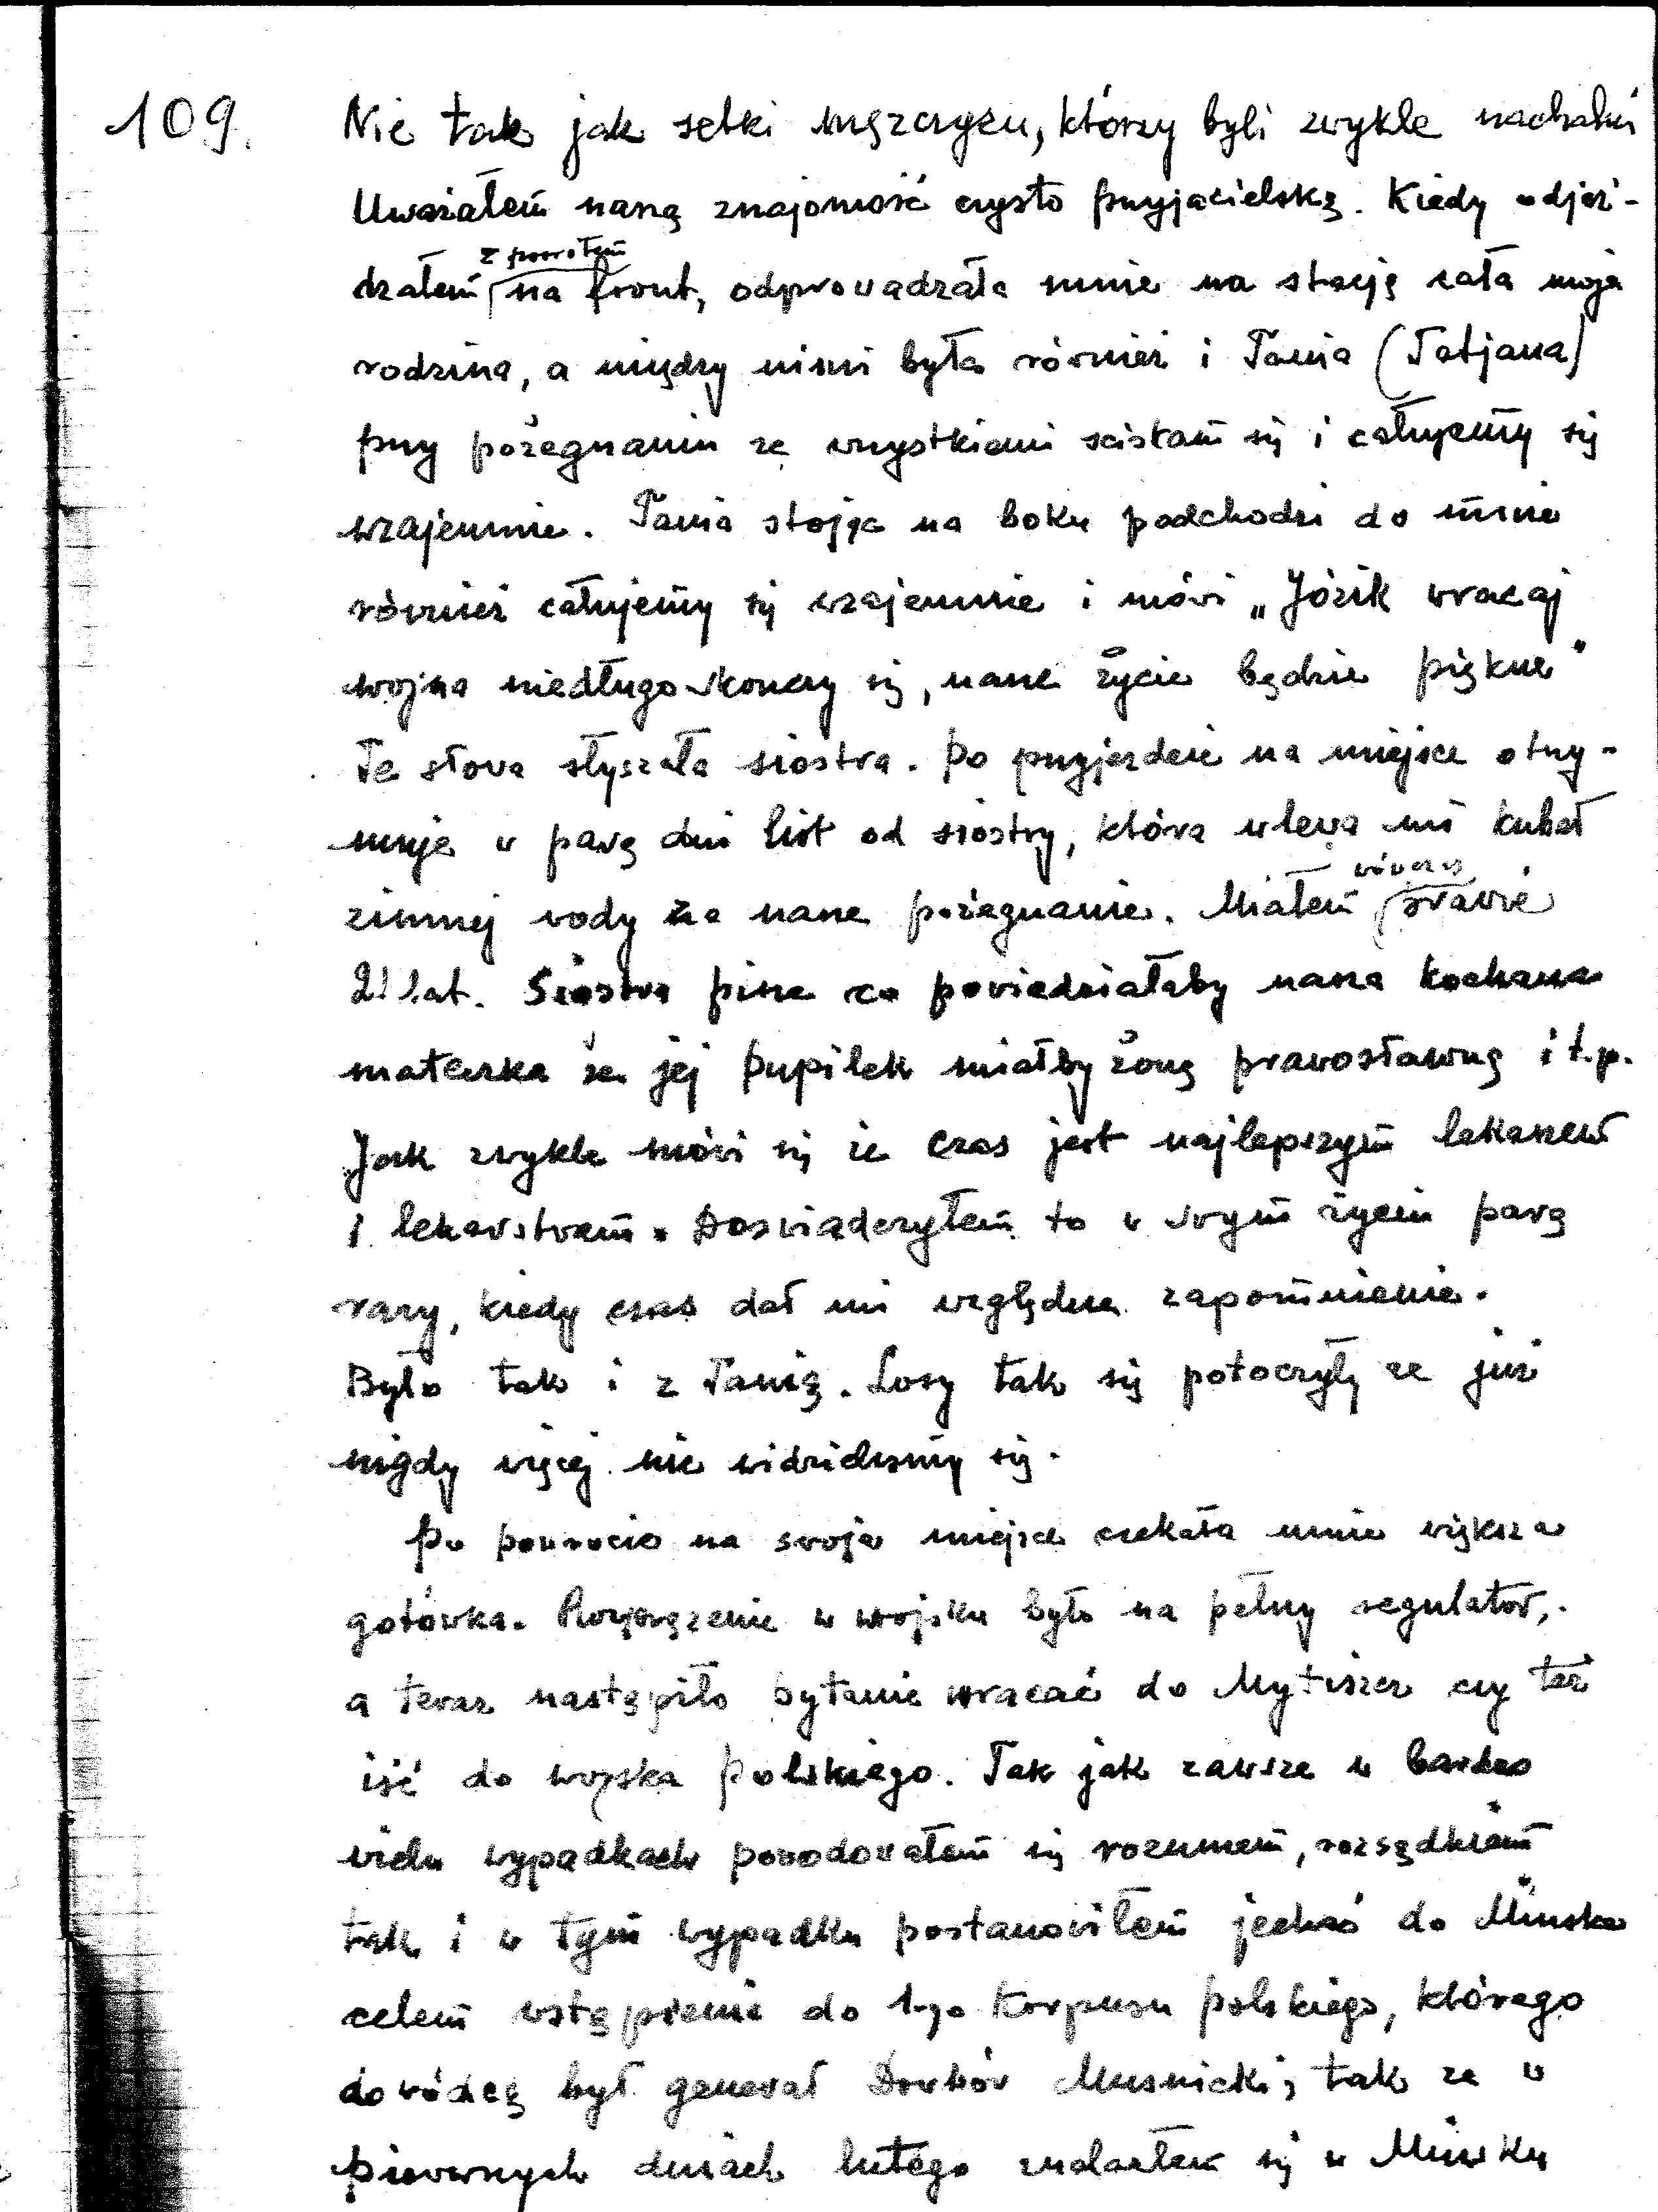 109.
Nie tak jak setki mężczyzn, którzy byli zwykle nachalni
Uważałem naszą znajomość czysto przyjacielską. Kiedy odjeż-
z powrotem
dżałem na front, odprowadzała mnie na stację cała moja
rodzina, a między nimi była również i Tania (Tatjana)
przy pożegnaniu ze wszystkiemi sciskam się i całujemy się
wzajemnie. Tania stojąc na boku podchodzi do mnie
również całujemy się wzajemnie i mówi „Józik wracaj
wojna niedługo skonczy się, nasze życie będzie piękne"
Te słowa słyszała siostra. Po przyjezdzie na miejsce otrzy-
muje w parę dni list od siostry, która wlewa mi kubeł
zimnej wody za nasze pożegnanie. Miałem
wówczas
prawie
21 lat. Siostra pisze co powiedziałaby nasza kochana
mateczka że jej pupilek miałby żonę prawosławną i t.p.
Jak zwykle mówi się że czas jest najlepszym lekarzem
i lekarstwem. Doswiadczyłem to w swym życiu parę
razy, kiedy czas dał mi względne zapomnienie.
Było tak i z Tanią. Losy tak się potoczyły ze już
nigdy więcej nie widzielismy się.
Po powrocie na swoje miejsce czekała mnie większa
gotówka. Rozprzężenie w wojsku było na pełny regulator,
a teraz nastąpiło pytanie wracać do Mytiszcz czy też
iść do wojska polskiego. Tak jak zawsze w bardzo
wielu wypadkach powodowałem się rozumem, rozsądkiem
tak i w tym wypadku postanowiłem jechać do Minska
celem wstąpienia do 1-go Korpusu polskiego, którego
dowódcą był generał Dowbór Musnicki, tak ze w
pierwszych dniach lutego znalazłem się w Minsku